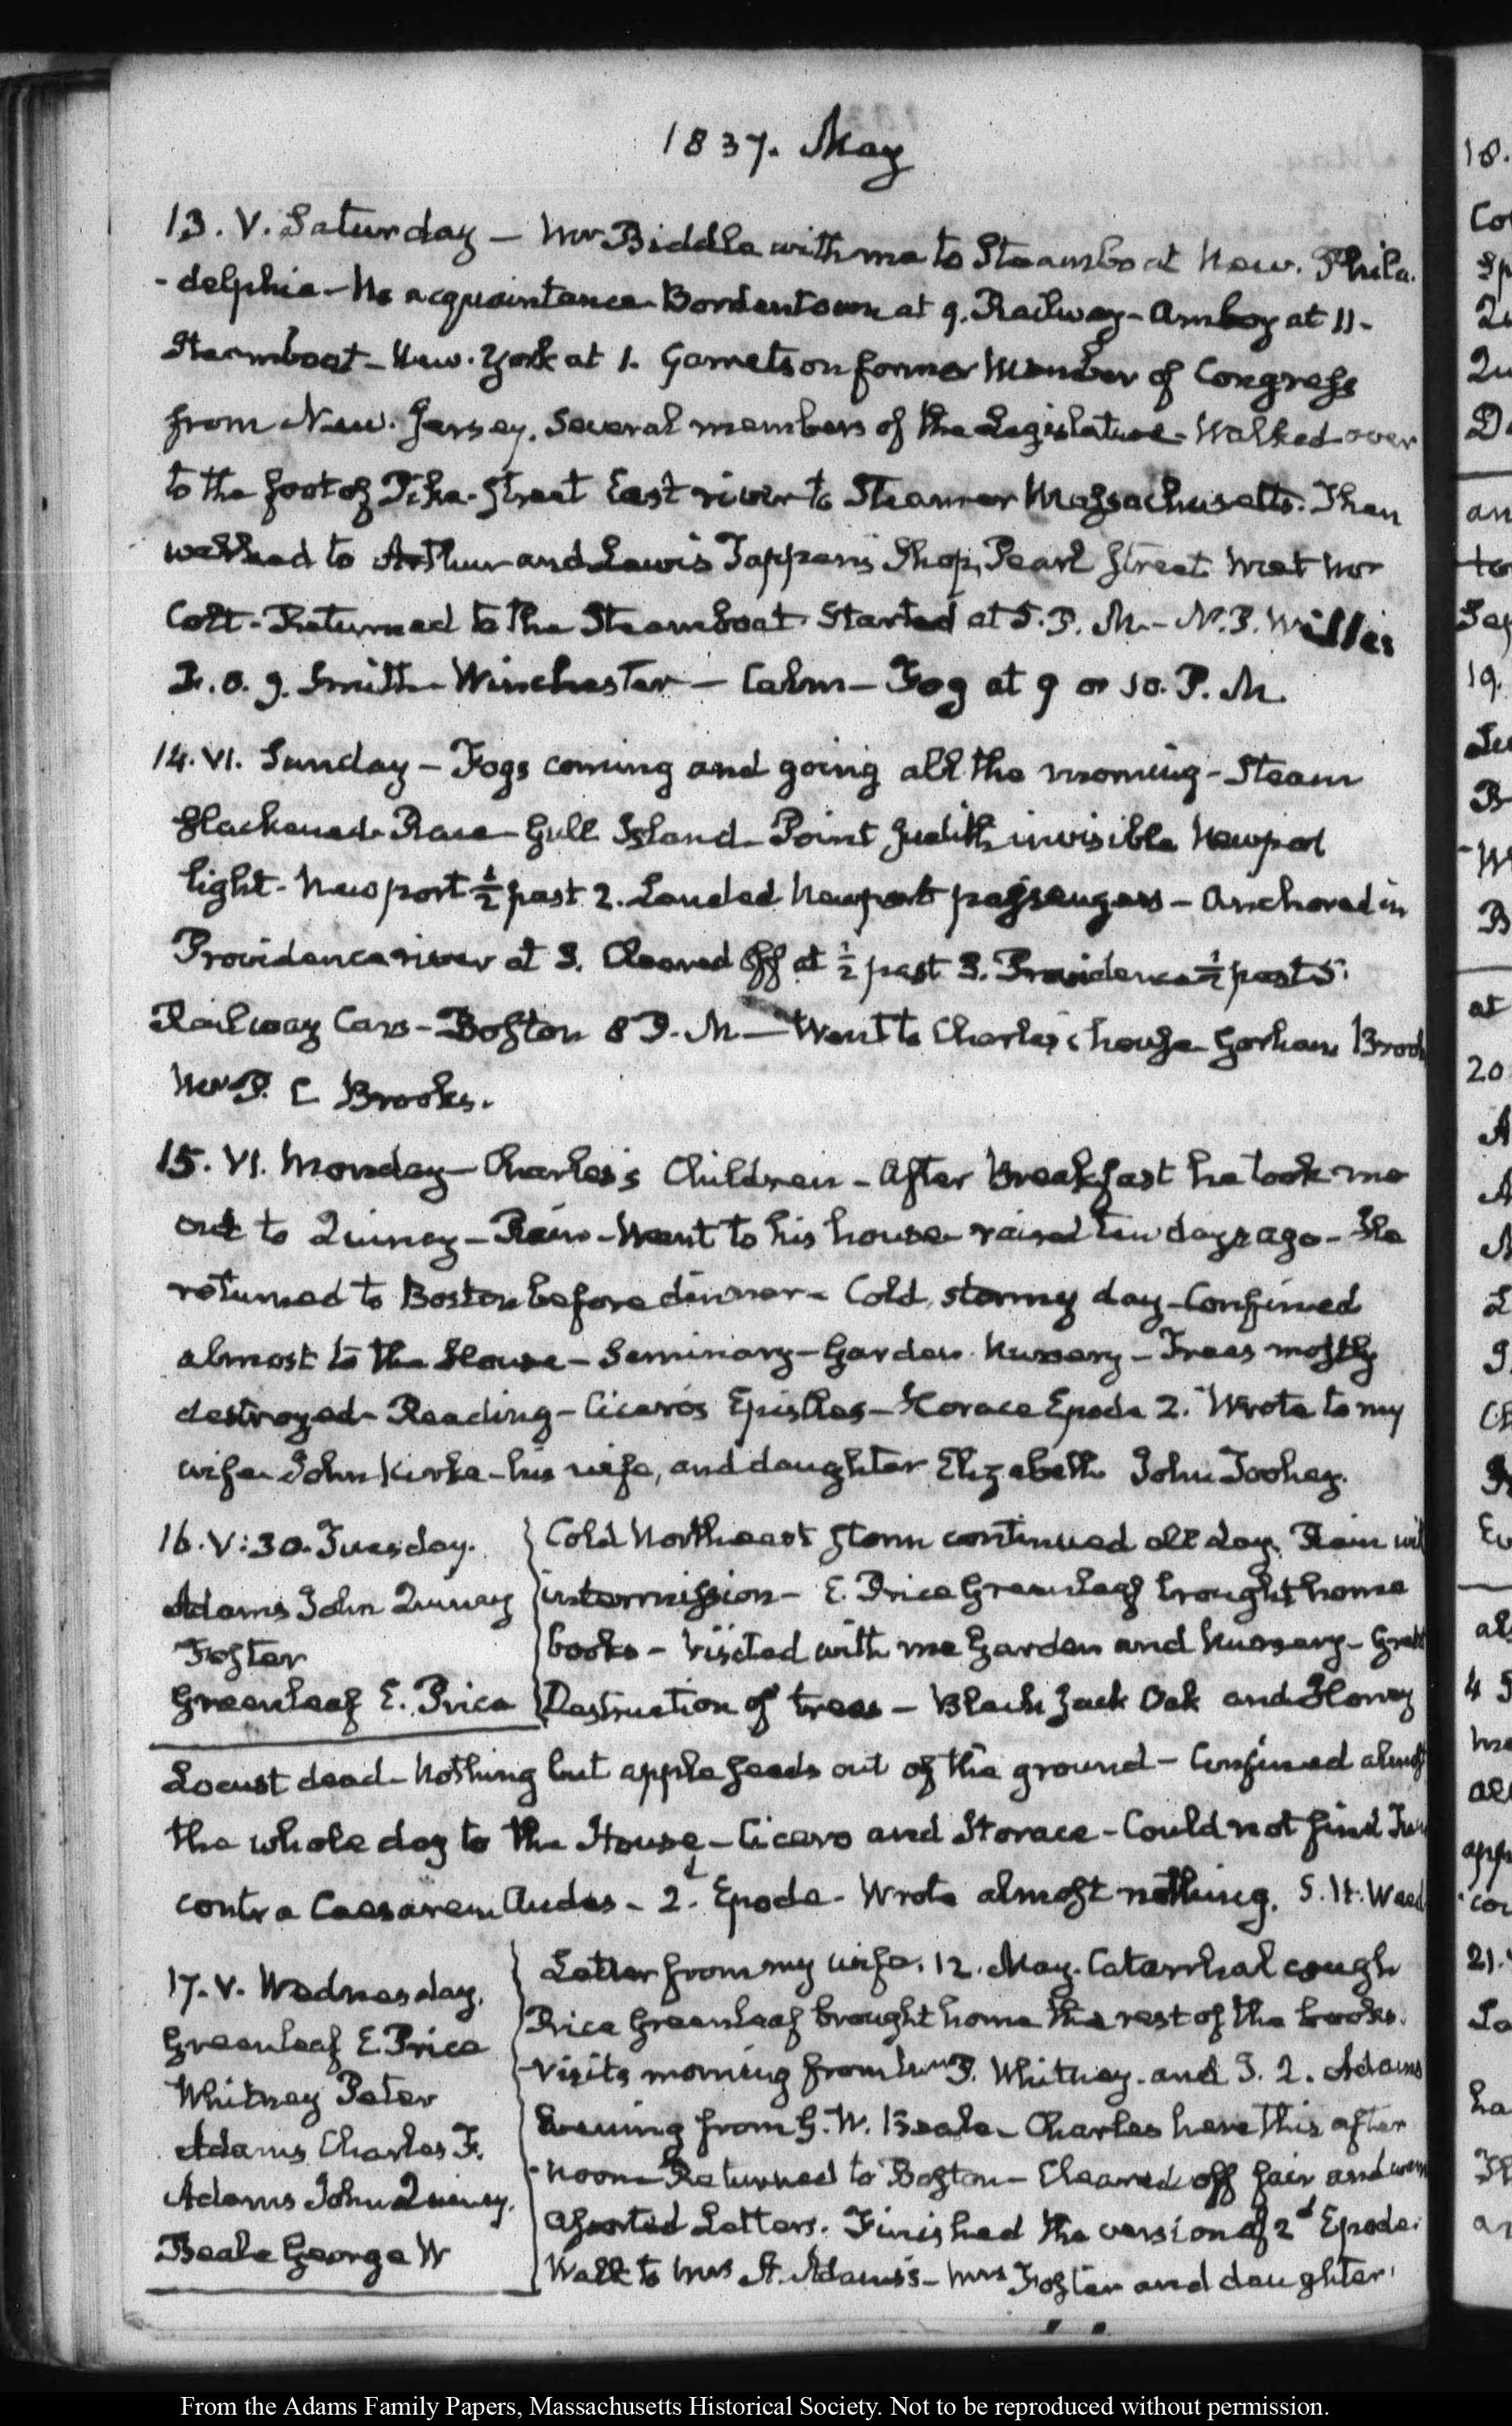 1837. May
13. V. Saturday – Mr Biddle with me to Steamboat New. Phila.
-delphia – No acquaintance – Bordentown at 9. Railway – Amboy at 11 –
Steamboat – New-York at 1. Garretson former Member of Congress
from New-Jersey. Several members of the Legislature – Walked over
to the foot of Pike-Street East river to Steamer Massachusetts. Then
walked to Arthur and Lewis Tappan's Shop, Pearl Street met Mr
Colt – Returned to the Steamboat – Started at 5. P. M. – N. P. Willis
F. O. J. Smith – Winchester – Calm – Fog at 9 or 10. P. M.
14. VI. Sunday – Fogs coming and going all the morning – Steam
slackened – Race – Gull Island – Point Judith invisible Newport
light – Newport ½ past 2. Landed Newport passengers – Anchored in
Providence river at 3. Cleared off at ½ past 3. Providence ½ past 5.
Railway Cars – Boston 8 P. M – Went to Charles's house – Gorham Brook
Mr P. C Brooks.
15. VI. Monday – Charles's Children – After Breakfast he took me
out to Quincy – Rain – Went to his house raised ten days ago – He
returned to Boston before dinner – Cold, stormy day – Confined
almost to the House – Seminary – Garden – Nursery – Trees mostly
destroyed – Reading – Cicero's Epistles – Horace Epode 2. Wrote to my
wife – John Kirke – his wife, and daughter Elizabeth John Toohey.
16. V:30. Tuesday.
Adams John Quincy
Foster
Greenleaf E. Price
Cold Northeast storm continued all day. Rain
intermission – E. Price Greenleaf brought home
books – Visited with me Garden and Nursery – Great
Destruction of trees – Black Jack Oak and Honey
Locust dead – Nothing but apple seeds out of the ground – Confined almost
the whole day to the House – Cicero and Horace – Could not find
contra Caesarem Audes – 2d. Epode – Wrote almost nothing. S. H.
17. V. Wednesday.
Greenleaf E Price
Whitney Peter
Adams Charles F.
Adams John Quincy.
Beale George W
Letter from my wife. 12. May. Catarrhal cough
Price Greenleaf brought home the rest of the books.
Visits morning from P. Whitney. and J. Q. Adams
Evening from G. W. Beale – Charles here this after
-noon – Returned to Boston – Cleared off fair and
Assorted Letters. Finished the version of 2d Epode.
Walk to Mrs A. Adams's – Mrs Foster and daughter.
From the Adams Family Papers, Massachusetts Historical Society. Not to be reproduced without permission.